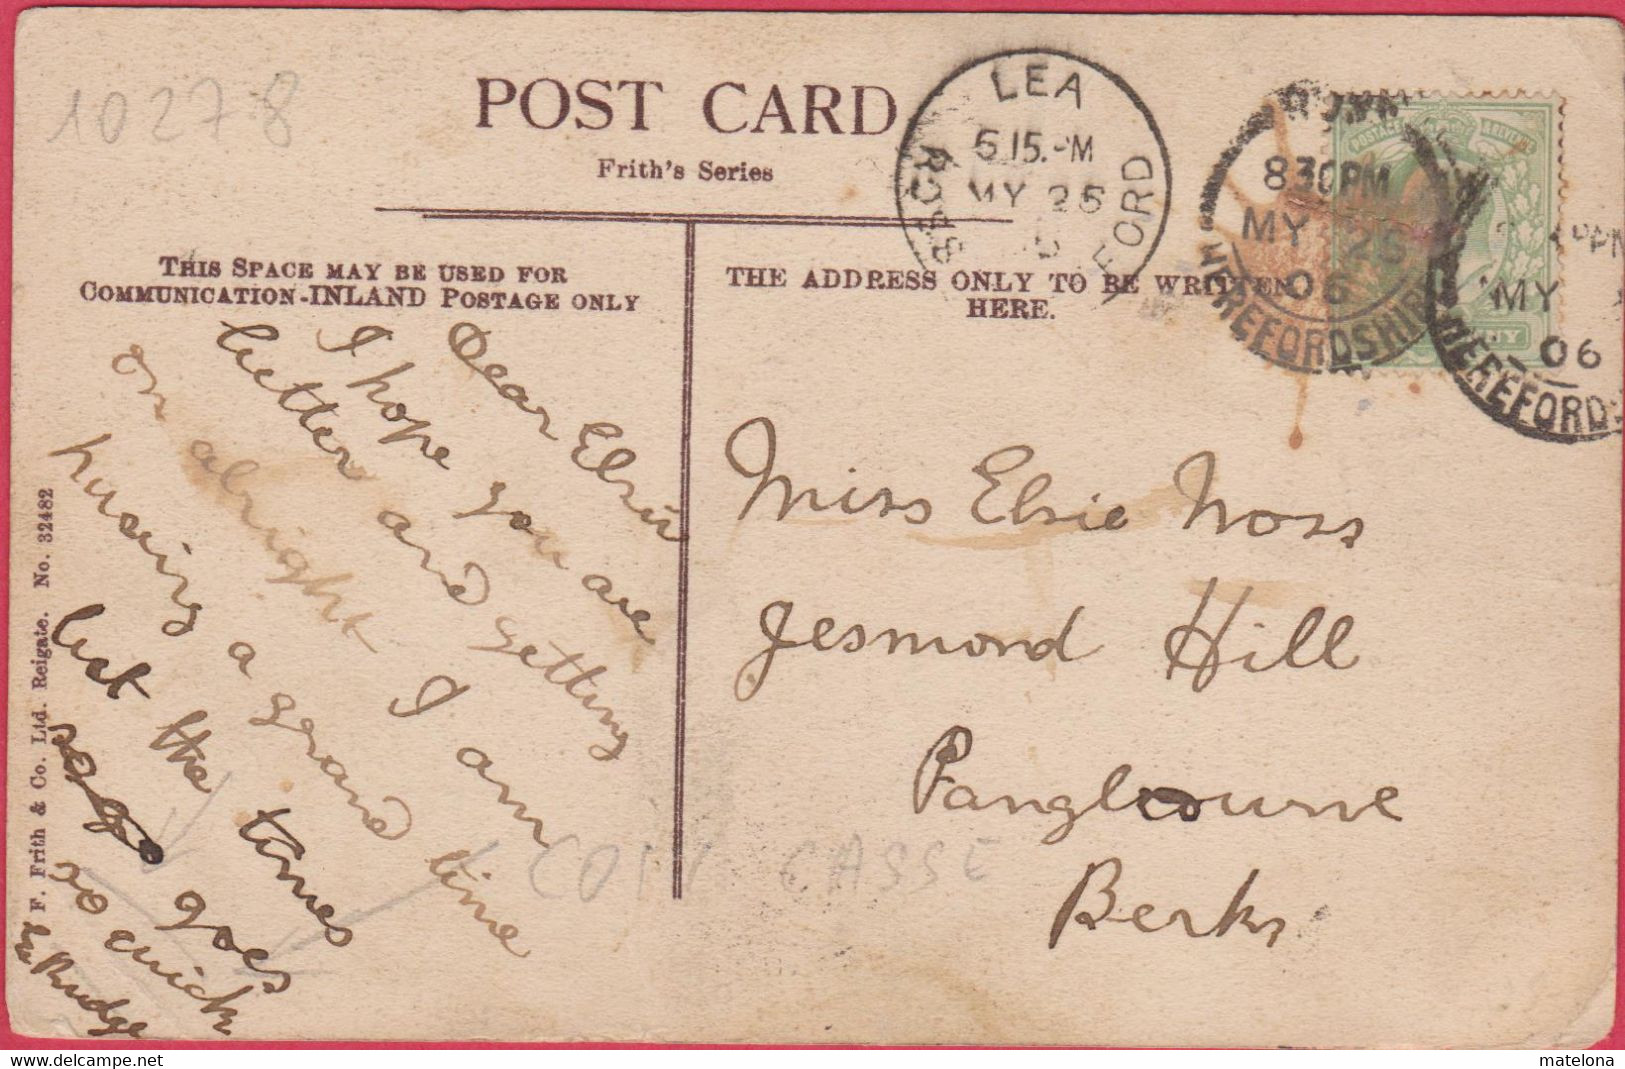 10278
POST CARD
Frith's Series
THIS SPACE MAY BE USED FOR
COMMUNICATION-INLAND POSTAGE ONLY
THE ADDRESS ONLY TO BE WRITTEN
HERE.
LEA
5 15.PM
MY 25
ROSS
FORD
8 30PM
MY 25
06
HEREFORDSHIRE
PM
MY
06
HEREFORD
POSTAGE & REVENUE
Dear Elsie
I hope you are
better and getting
on alright I am
having a grand time
but the times
goes
so quick
Rudge
Miss Elsie Noss
Jesmond Hill
Pangbourne
Berks
COIN CASSE
F. Frith & Co. Ltd. Reigate. No. 32482
delcampe.net
matelona